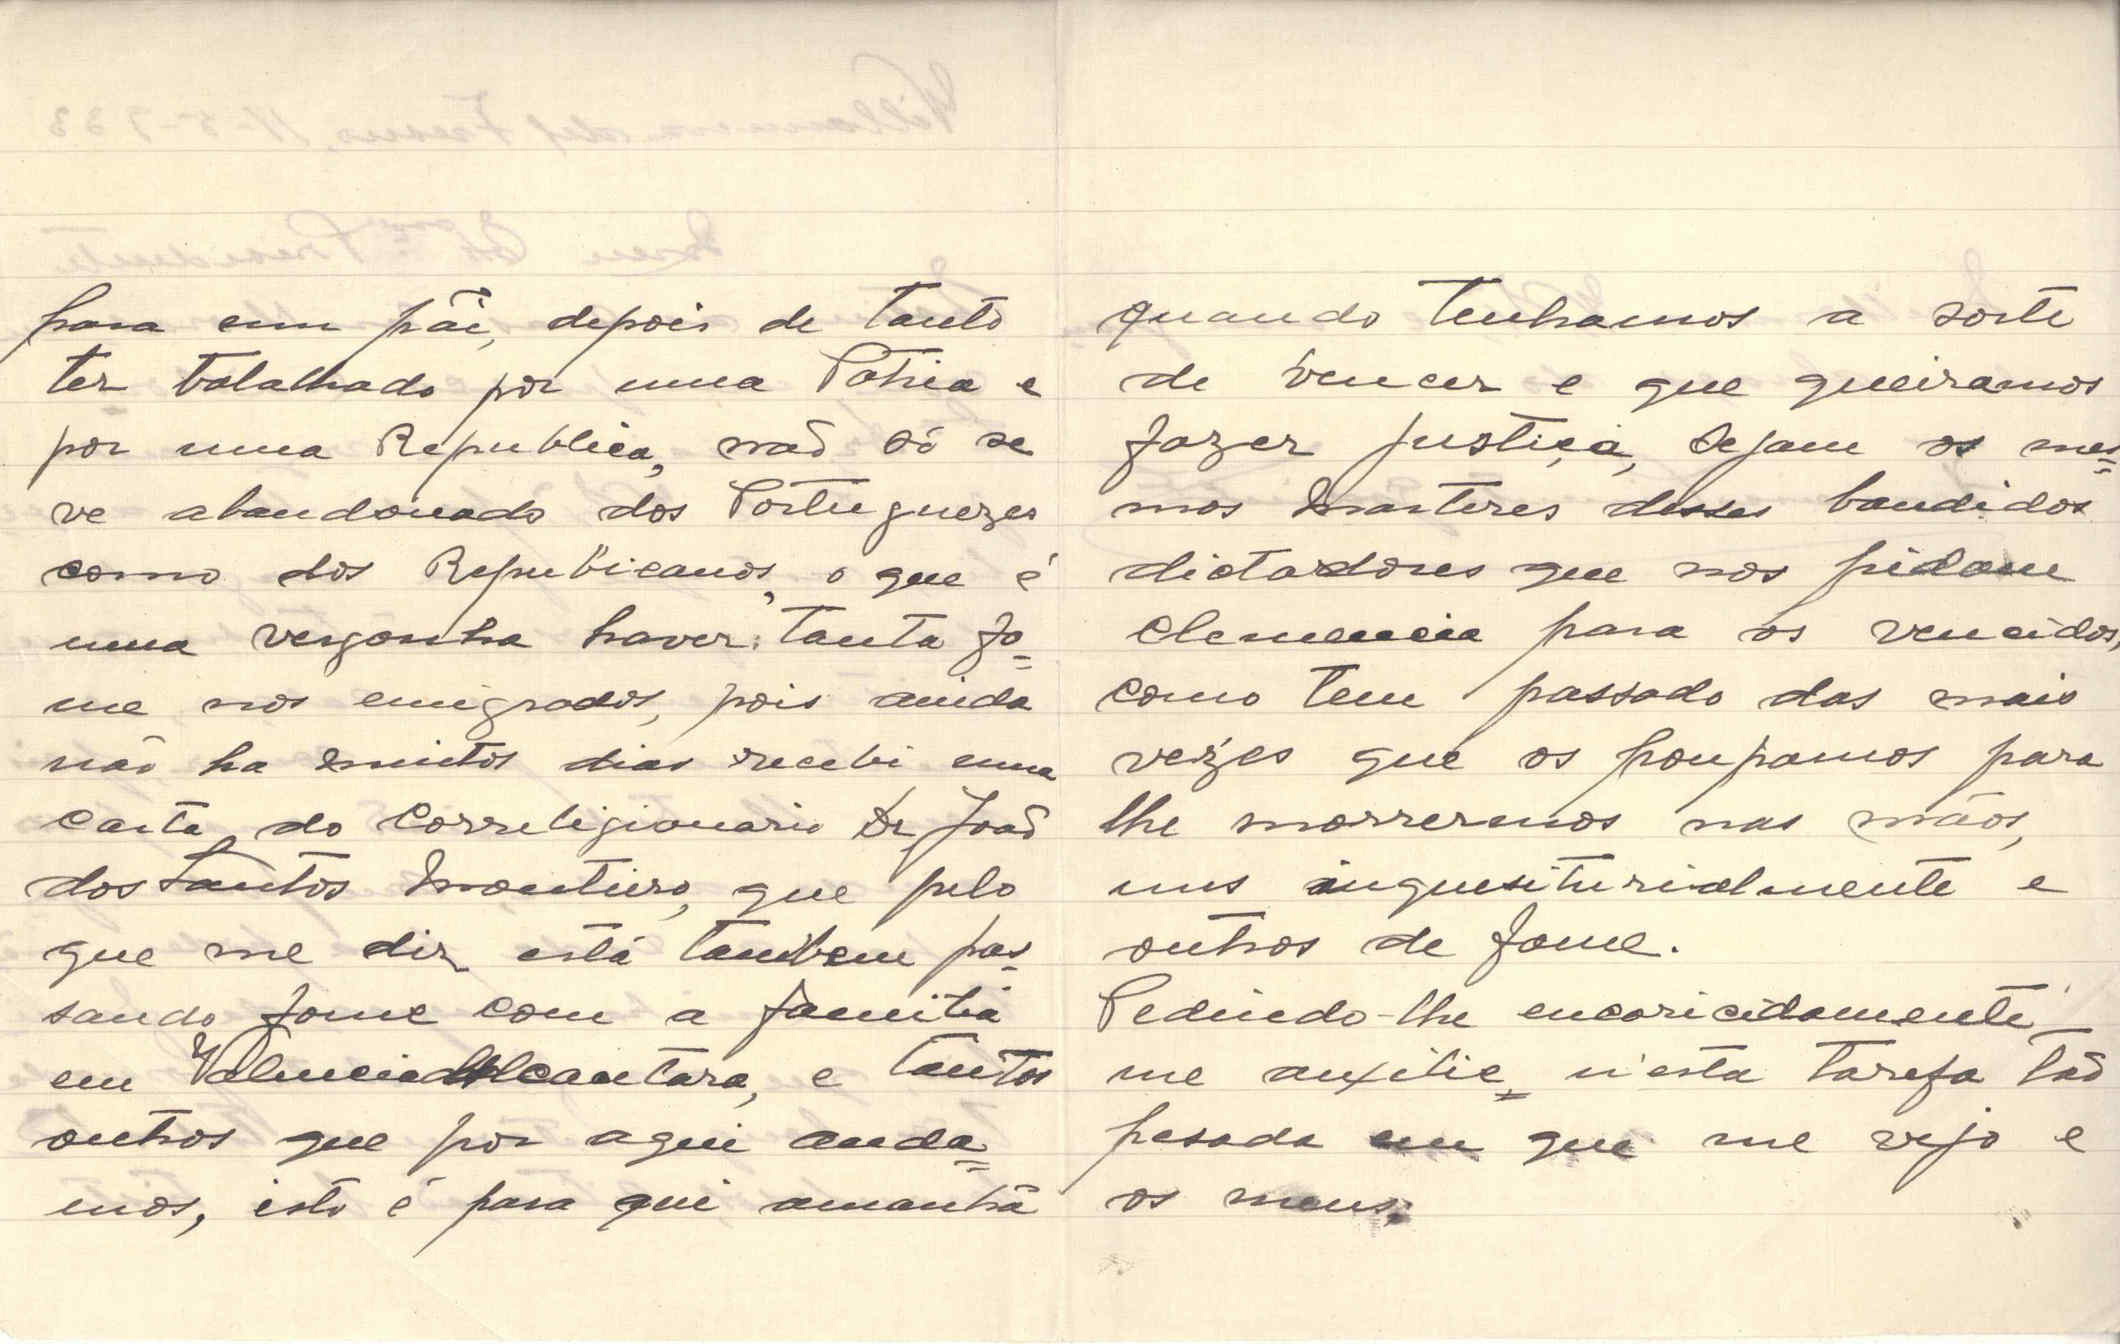 para um pâi, depois de tanto
ter batalhado por uma Patria e
por uma Republica, naõ só se
ve abandonado dos Portuguezes
como dos Republicanos, o que é
uma vergonha haver tanta fo=
me nos emigrados, pois ainda
não ha muitos dias recebi uma
carta do Correligionario Dr João
dos Santos Monteiro, que pelo
que me diz está tambem pas=
sando fome com a familia
em Valencia Alcantara, e tantos
outros que por aqui anda=
mos, isto é para que amanhã
quando tenhamos a sorte
de vencer e que queiramos
fazer justiça, sejam os mes=
mos Marteres desses bandidos
dictadores que nos pidam
clemencia para os vencidos,
como tem passado das mais
vezes que os poupamos para
lhe morrermos nas mãos,
uns inquesiturialmente e
outros de fome.
Pedindo-lhe encaricidamente
me auxilie, n'esta tarefa tão
pesada em que me vejo e
os meus,